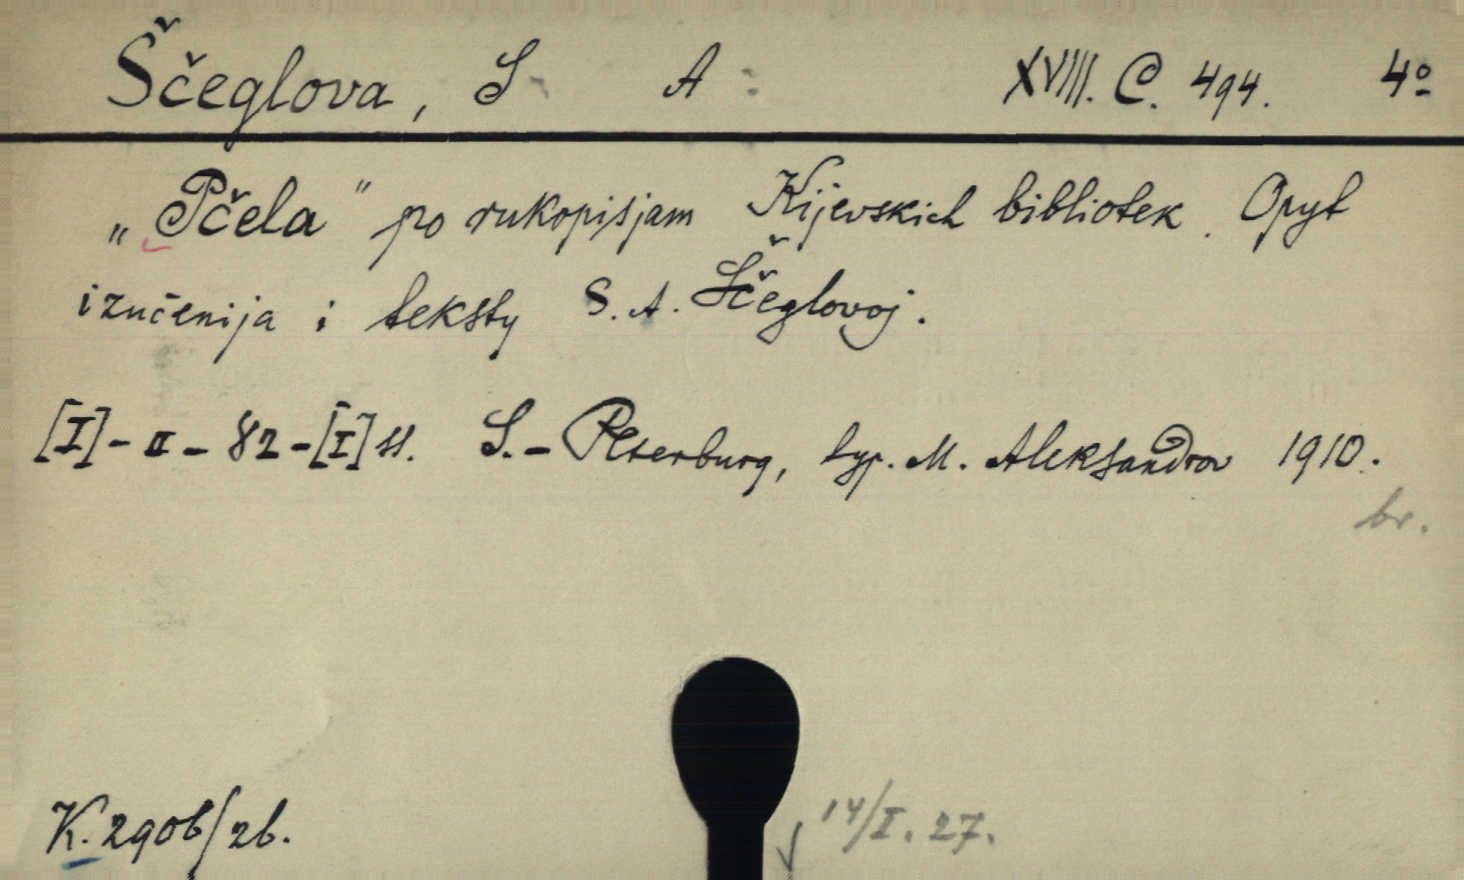 Ščeglova, S A XVIII. C. 494. 4º
„Pčela" po rukopisjam Kijevskich bibliotek. Opyt
izučenija i teksty S. A. Ščeglovoj.
[I]-II-82-[I] ss. S.-Peterburg, typ. M. Aleksandrov 1910.
br.
K. 2906/26.
14/I. 27.